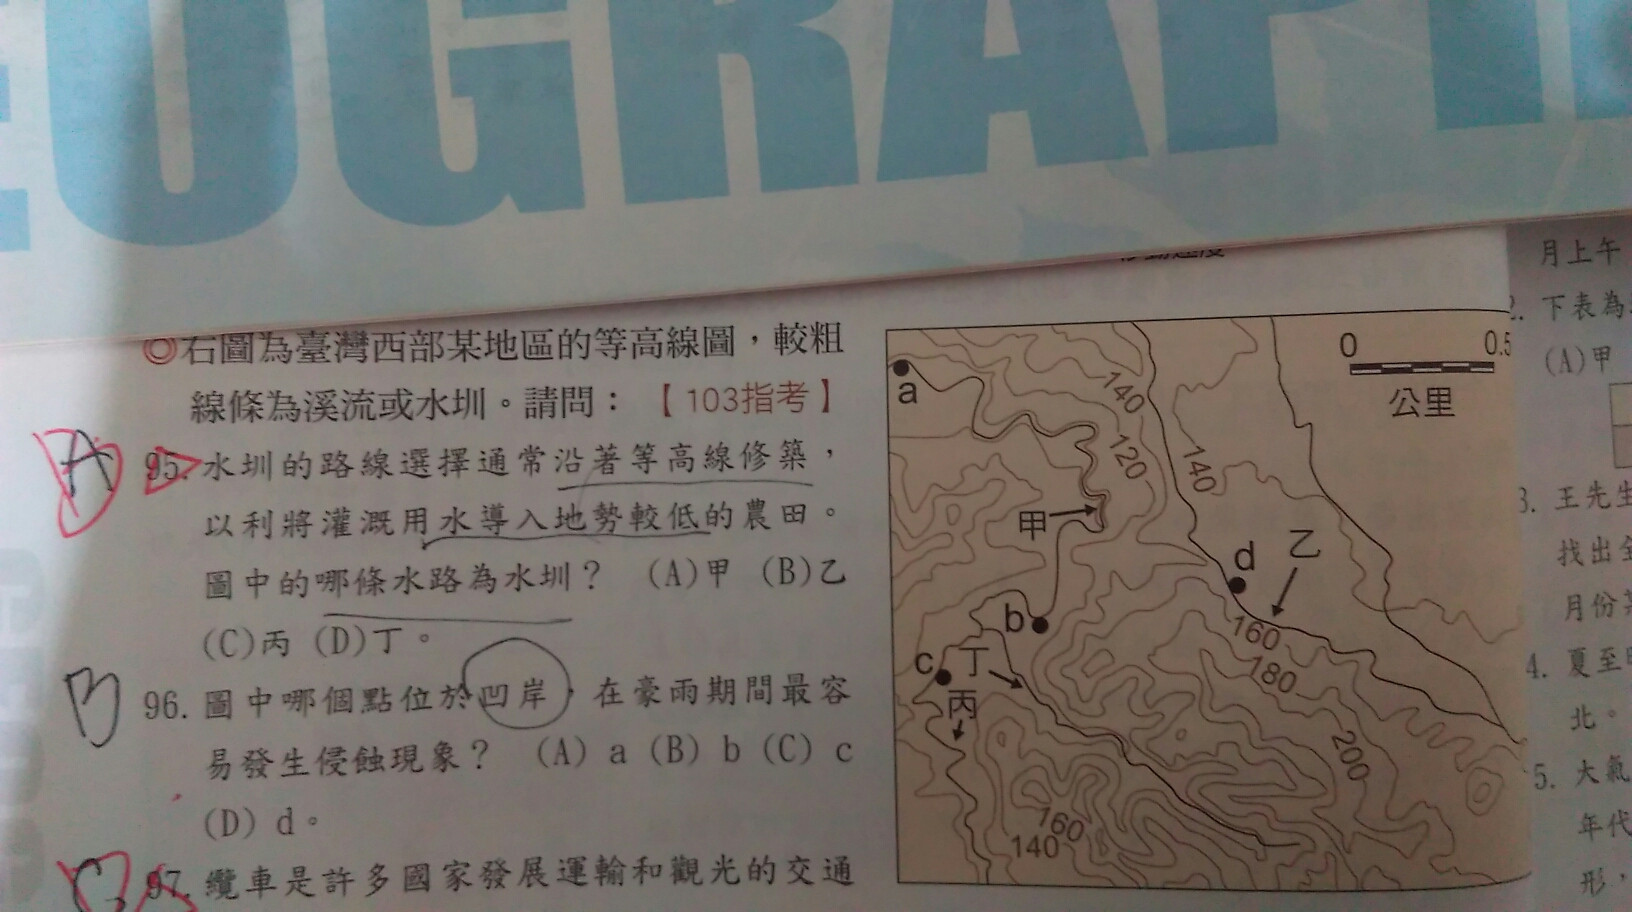 EOGRAPH
◎右圖為臺灣西部某地區的等高線圖，較粗
線條為溪流或水圳。請問：【103指考】
A 95. 水圳的路線選擇通常沿著等高線修築，
以利將灌溉用水導入地勢較低的農田。
圖中的哪條水路為水圳？ (A)甲 (B)乙
(C)丙 (D)丁。
B 96. 圖中哪個點位於凹岸，在豪雨期間最容
易發生侵蝕現象？ (A) a (B) b (C) c
(D) d。
97. 纜車是許多國家發展運輸和觀光的交通
0 0.5
公里
a
140
120
140
甲
d 乙
b
160
c 丁
180
丙
200
160
140
月上午
2. 下表為
(A)甲
3. 王先生
找出全
月份
4. 夏至
北。
5. 大氣
年代
形，